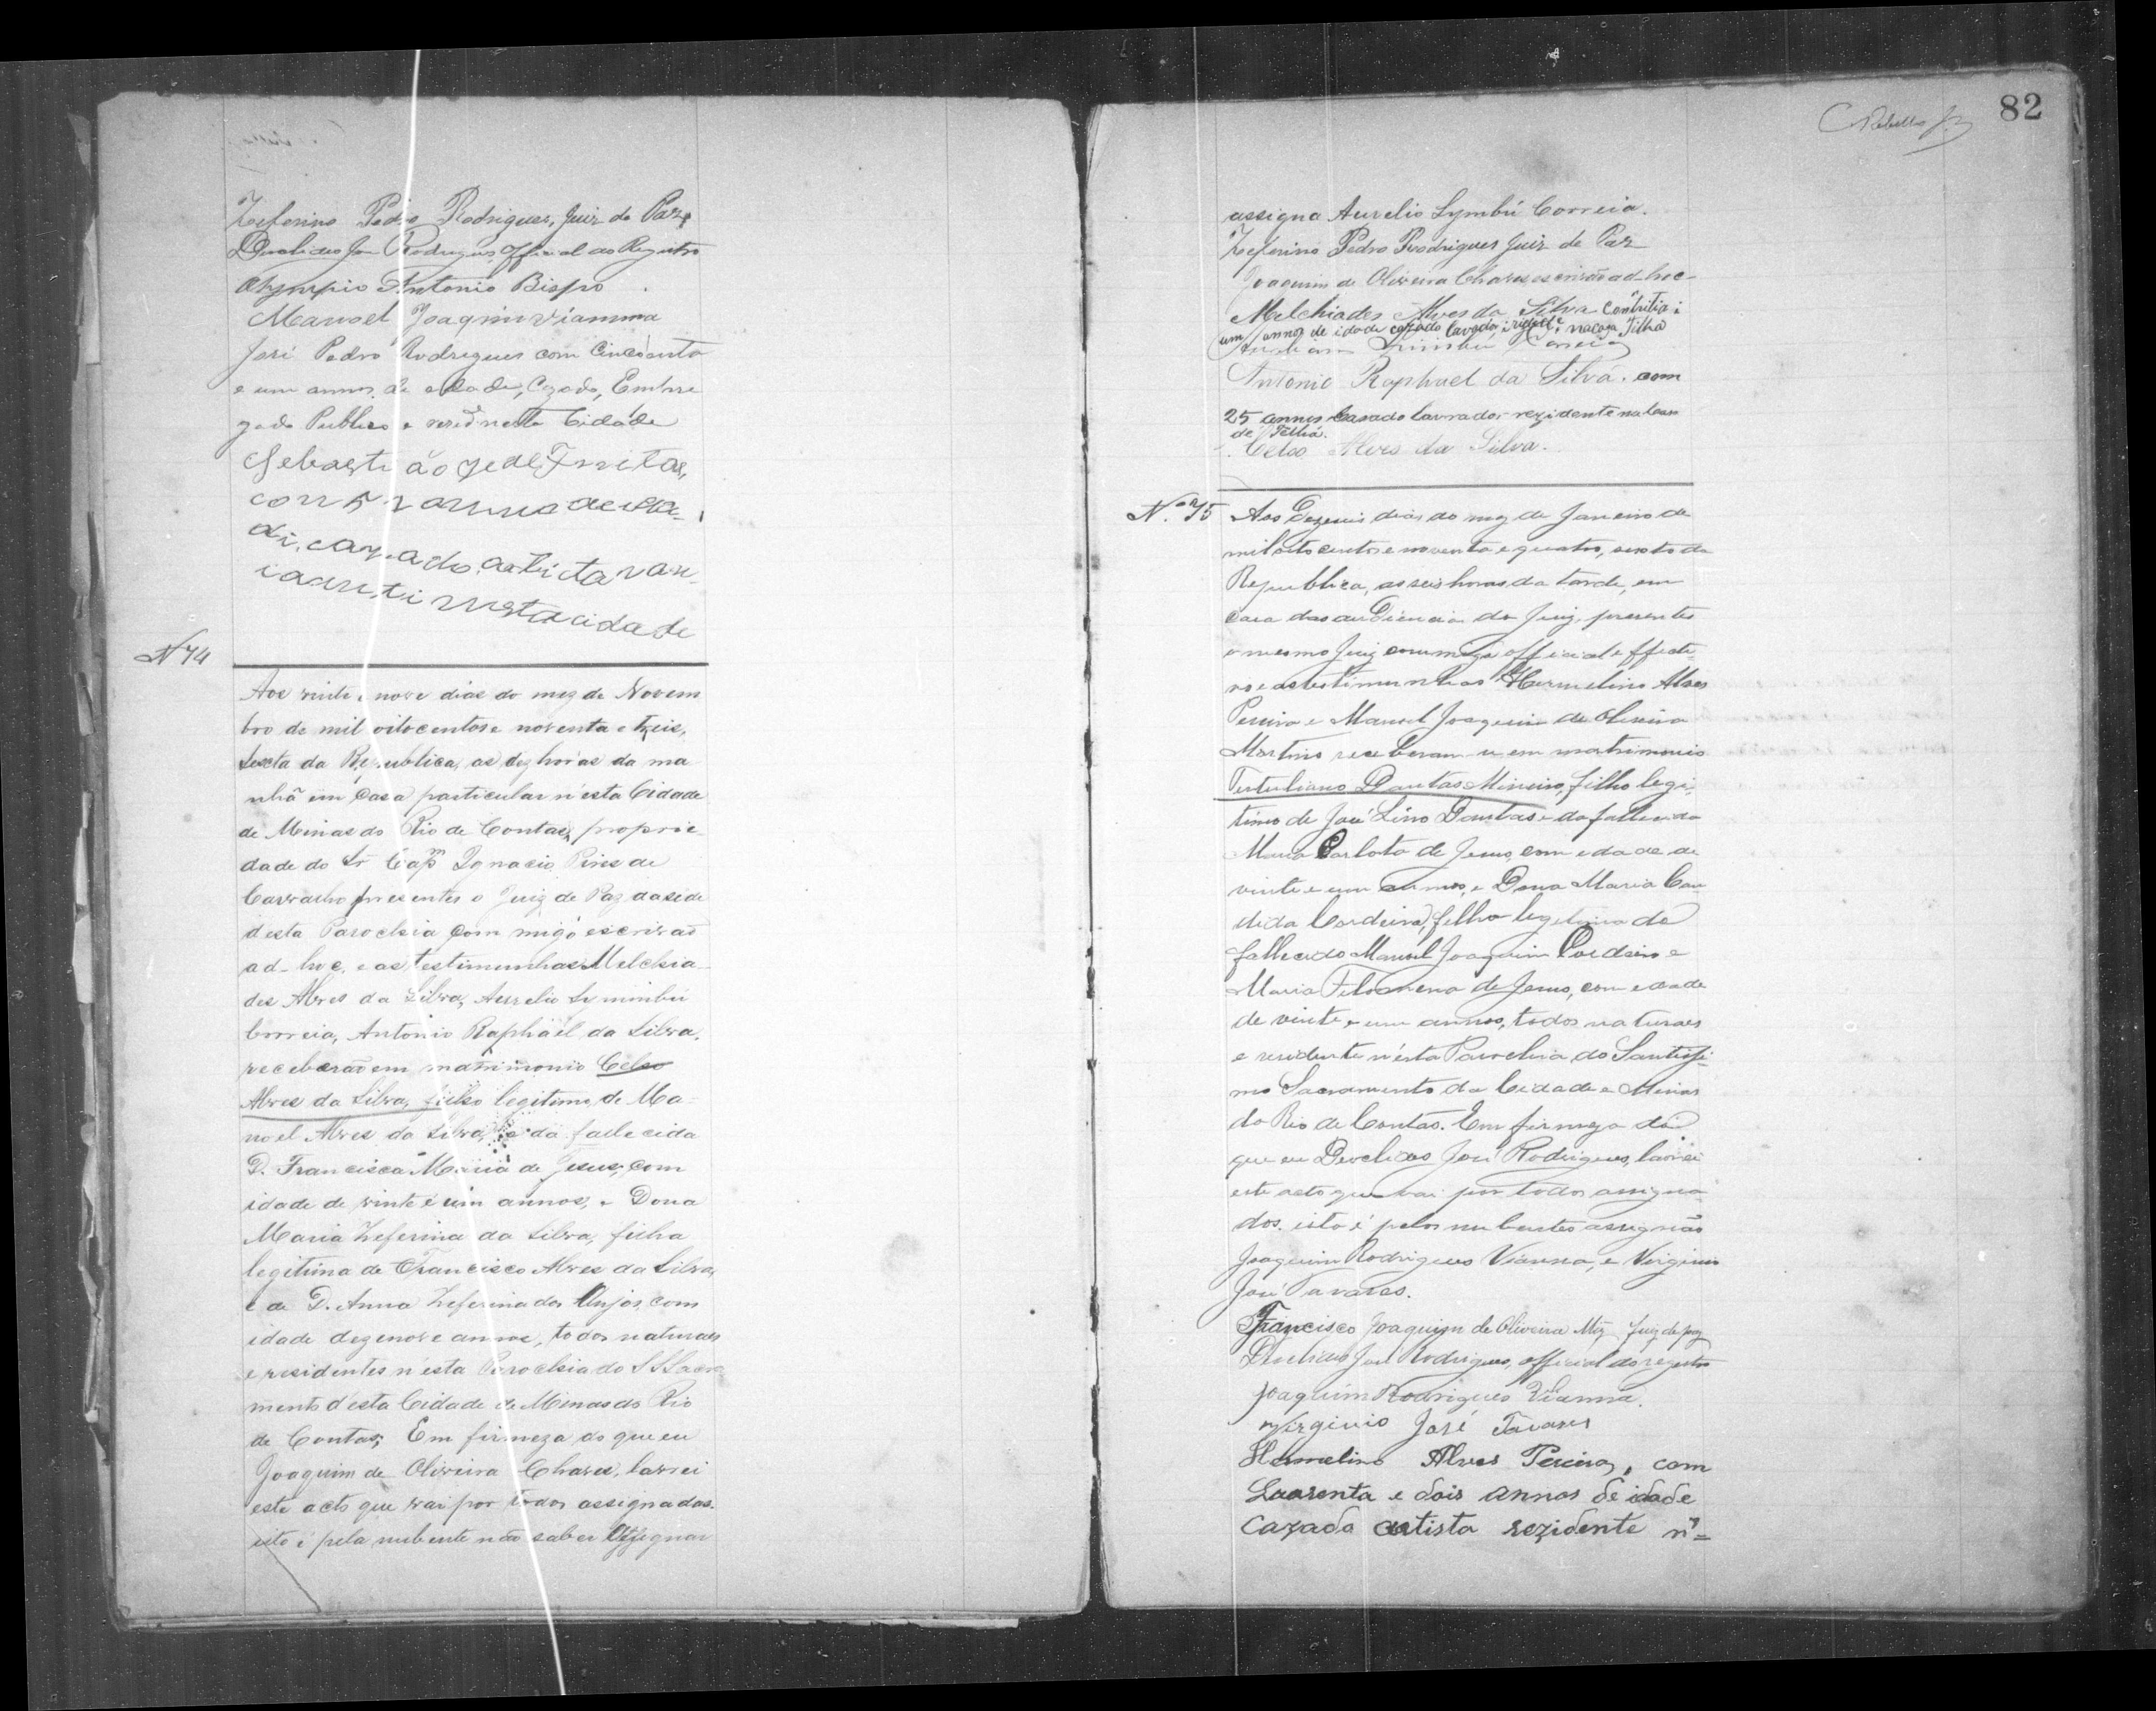 Zeferino Pedro Rodrigues, Juiz de Paz
Deoclides José Rodrigues, Official do Registro
Olympio Antonio Bispo
Manoel Joaquim Vianna
José Pedro Rodrigues com Cincoenta
e um annos de edade, Cazado, Empre
gado Publico e resid nesta Cidade
Sebastião de Freitas,
com annos de ida-
di, cazado, artista
nesta cidade
Nº 74
Aos vinte e nove dias do mez de Novem
bro de mil oitocentos e noventa e treis,
sexta da Republica, as dez horas da ma
nhã em Casa particular n'esta Cidade
de Minas do Rio de Contas, proprie
dade do Sr Capm Ignacio Pires de
Carvalho presentes o Juiz de Paz da sede
desta Parochia commigo escrivaõ
ad-hoc, e as testimunhas Melchia-
des Alves da Silva, Aurelio Symimbú
Correia, Antonio Raphael da Silva,
receberaõ em matrimonio Celso
Alves da Silva, filho legitimo de Ma-
noel Alves da Silva, e da fallecida
D. Francisca Maria de Jesus, com
idade de vinte e um annos, e Dona
Maria Zeferina da Silva, filha
legitima de Francisco Alves da Silva,
e de D. Anna Zeferina dos Anjos, com
idade dezenove annos, todos naturaes
e residentes n'esta Parochia do SS Sacra
mento d'esta Cidade de Minas do Rio
de Contas; Em firmeza do que eu
Joaquim de Oliveira Chaves, lavrei
este acto que vai por todos assignados.
isto é pela nubente não saber Assegnar
82
Rebello Jr
assigna Aurelio Symbú Correia.
Zeferino Pedro Rodrigues Juiz de Paz
Joaquim de Oliveira Chaves escrivão ad-hoc-
Melchiades Alves da Silva
um annos de idade cazado lavrador na Telha
Correia
Antonio Raphael da Silva. com
25 annos Casado lavrador rezidente na
de Telhá.
Celso Alves da Silva.
Nº 75 Aos Dezeseis dias do mez de Janeiro de
mil oito centos e noventa e quatro, sexto da
Republica, as seis horas da tarde, em
casa das audiencias do Juiz, presentes
o mesmo Juiz commigo official effecti-
vo e as testimunhas Hermelino Alves
Pereira e Manoel Joaquim de Oliveira
Martins receberam-se em matrimonio
Tertuliano Dantas Mineiro, filho legi-
timo de José Lino Dantas e da fallecida
Maria Carlota de Jesus, com edade de
vinte e um annos, e Dona Maria Can
dida Cordeiro, filha legitima do
fallecido Manoel Joaquim Cordeiro e
Maria Filomena de Jesus, com edade
de vinte e um annos, todos naturaes
e residente n'esta Parochia do Santissi-
mo Sacramento da Cidade e Minas
do Rio de Contas. Em firmeza do
que eu Deoclides José Rodrigues, lavrei
este acto que vai por todos assigna-
dos. isto é pelos nubentes assegnão
Joaquim Rodrigues Vianna, e Virginio
José Tavares.
Francisco Joaquim de Oliveira Mz Juiz de paz
Deoclides José Rodrigues, official do registro
Joaquim Rodrigues Vianna.
Virginio José Tavares
Hermelino Alves Pereira, com
Quarenta e dois annos de idade
Cazado artista rezidente n'=